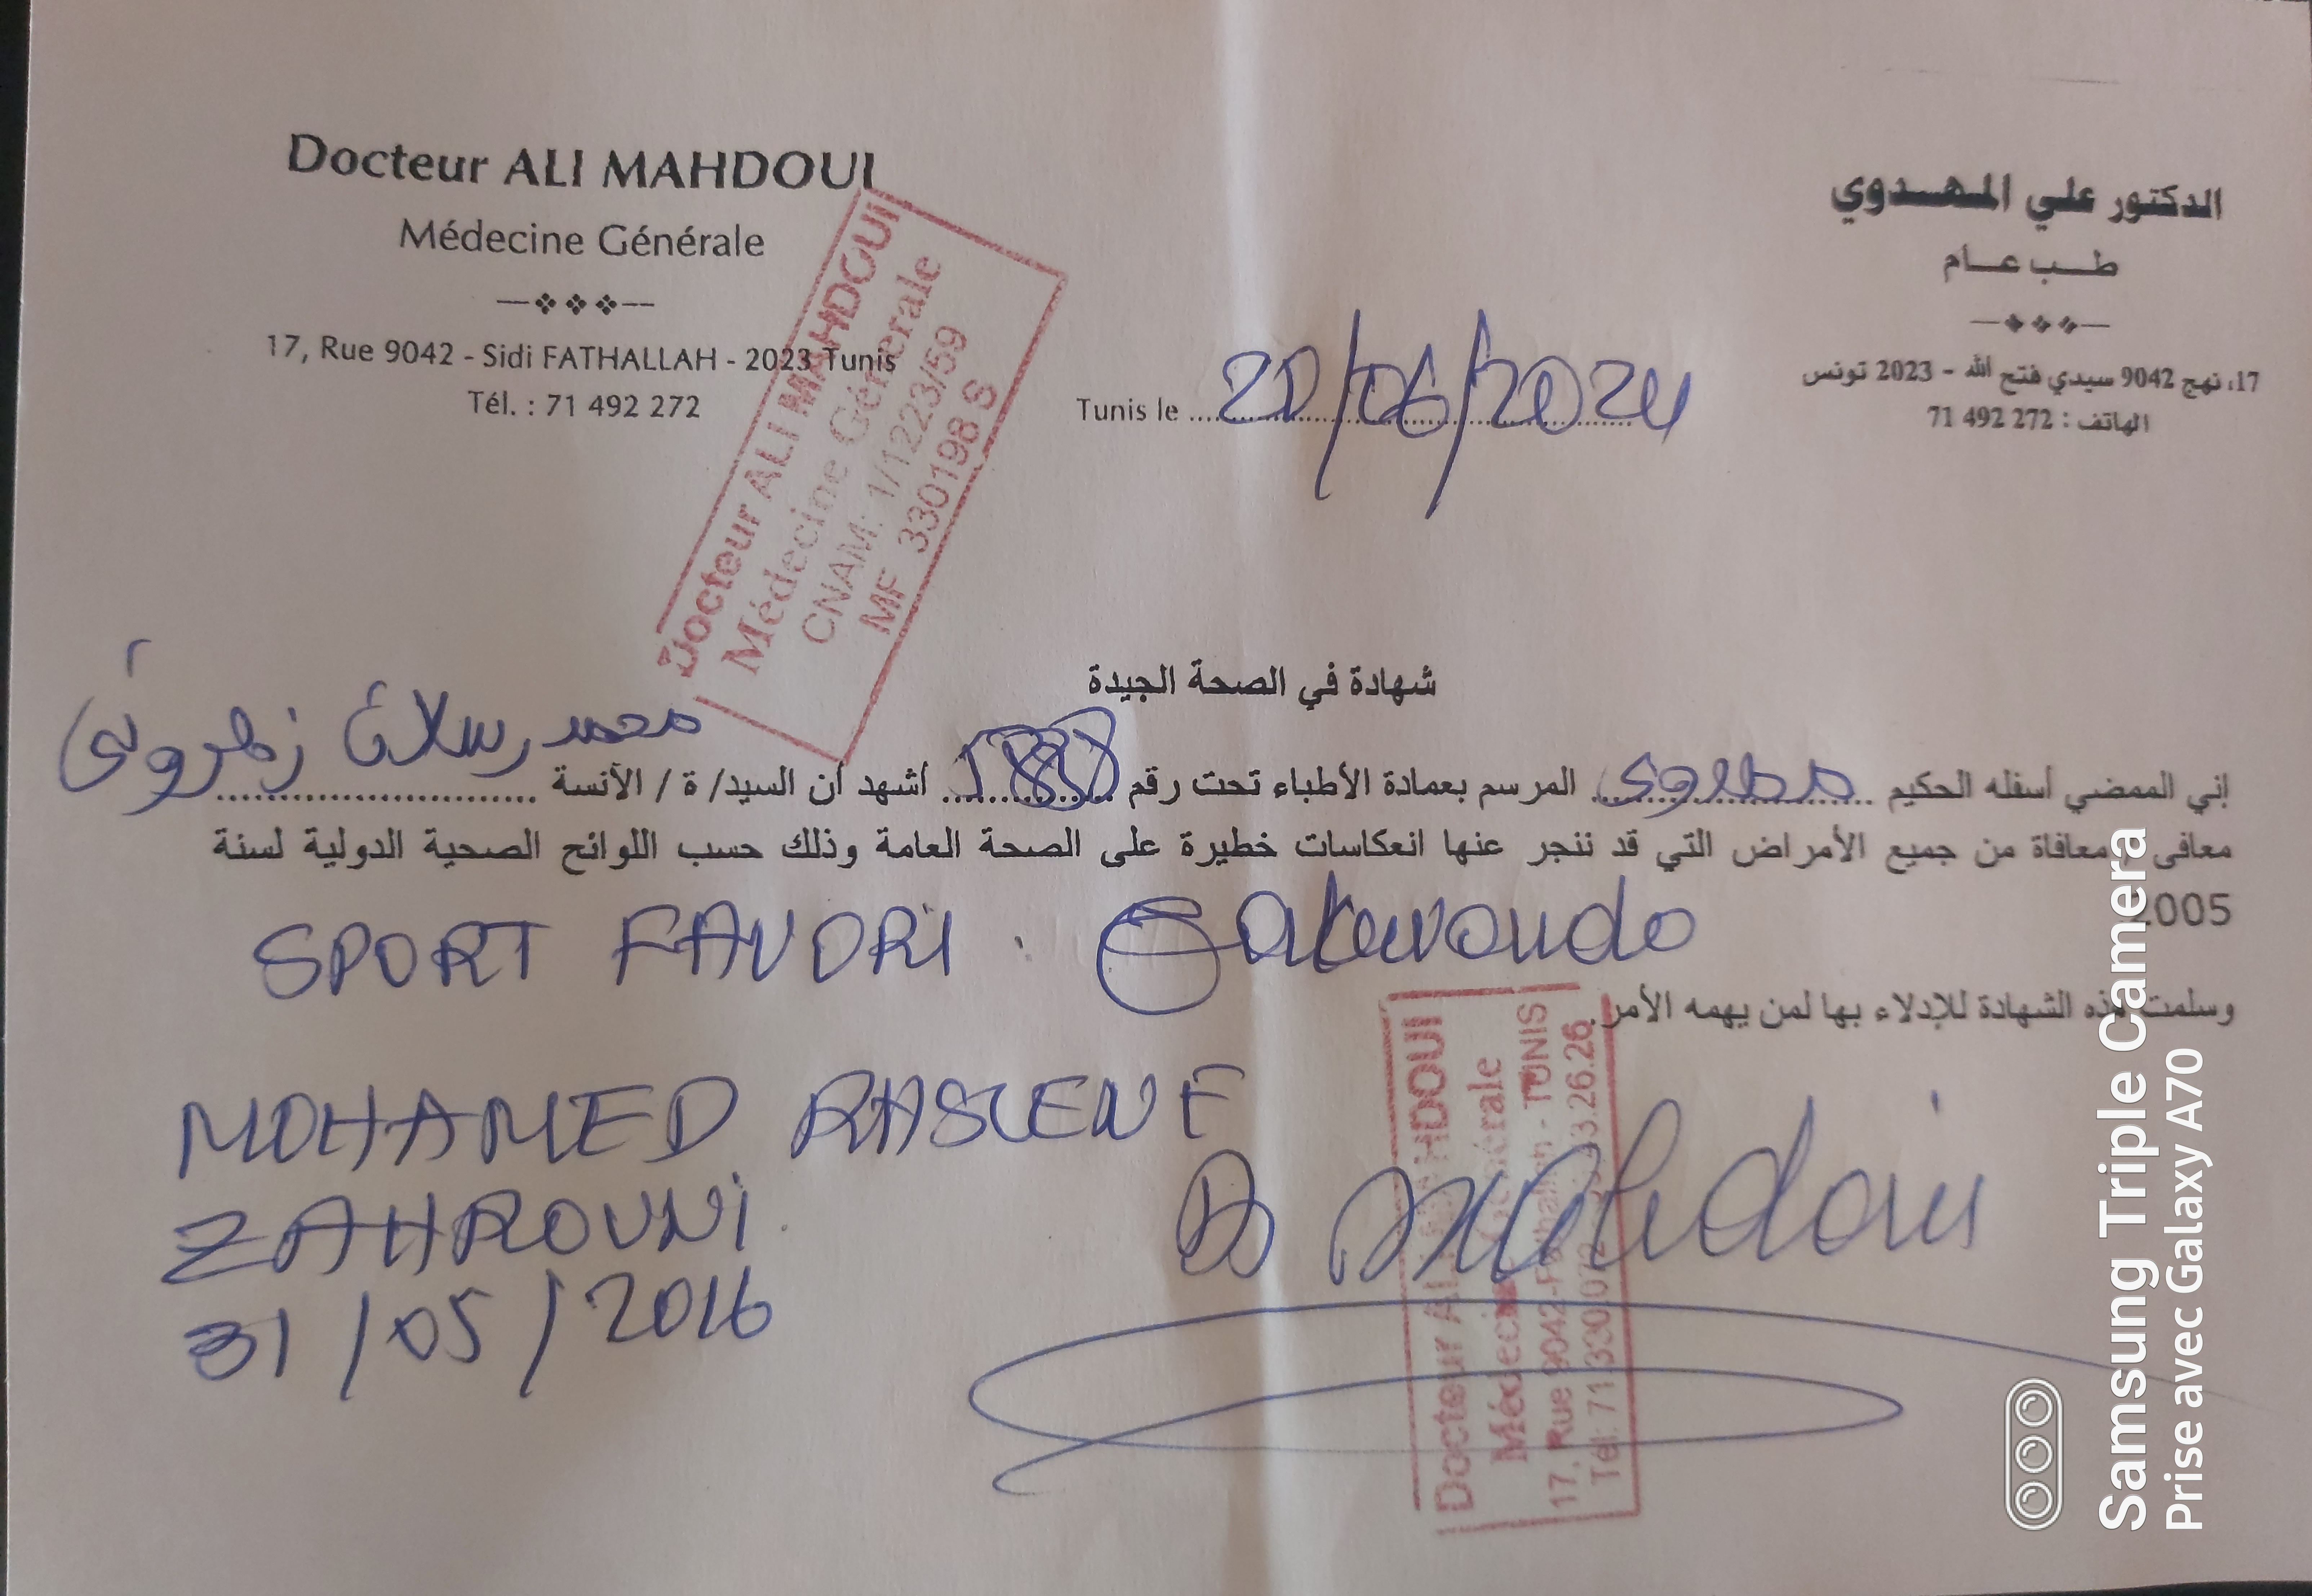 Docteur ALI MAHDOUI
Médecine Générale
17, Rue 9042 - Sidi FATHALLAH - 2023 Tunis
Tél. : 71 492 272
الدكتور علي المهدوي
طب عام
17، نهج 9042 سيدي فتح الله - 2023 تونس
الهاتف : 272 492 71
Docteur ALI MAHDOUI
Médecine Générale
CNAM: 1/1223/59
MF 330198 S
Tunis le 20/06/2024
شهادة في الصحة الجيدة
إني الممضي أسفله الحكيم مهدوي المرسم بعمادة الأطباء تحت رقم أشهد أن السيد/ ة / الآنسة محمد رسلان زهروني
معافى / معافاة من جميع الأمراض التي قد ننجر عنها انعكاسات خطيرة على الصحة العامة وذلك حسب اللوائح الصحية الدولية لسنة
2005
SPORT FAVORI : Taekwondo
وسلمت هذه الشهادة للإدلاء بها لمن يهمه الأمر.
MOHAMED RASLENE
ZAHROUNI
31/05/2016
Dr Mahdoui
Docteur ALI MAHDOUI
Médecine Générale
17, Rue 9042-Fathallah - TUNIS
Tél: 71 330 072
Samsung Triple Camera
Prise avec Galaxy A70